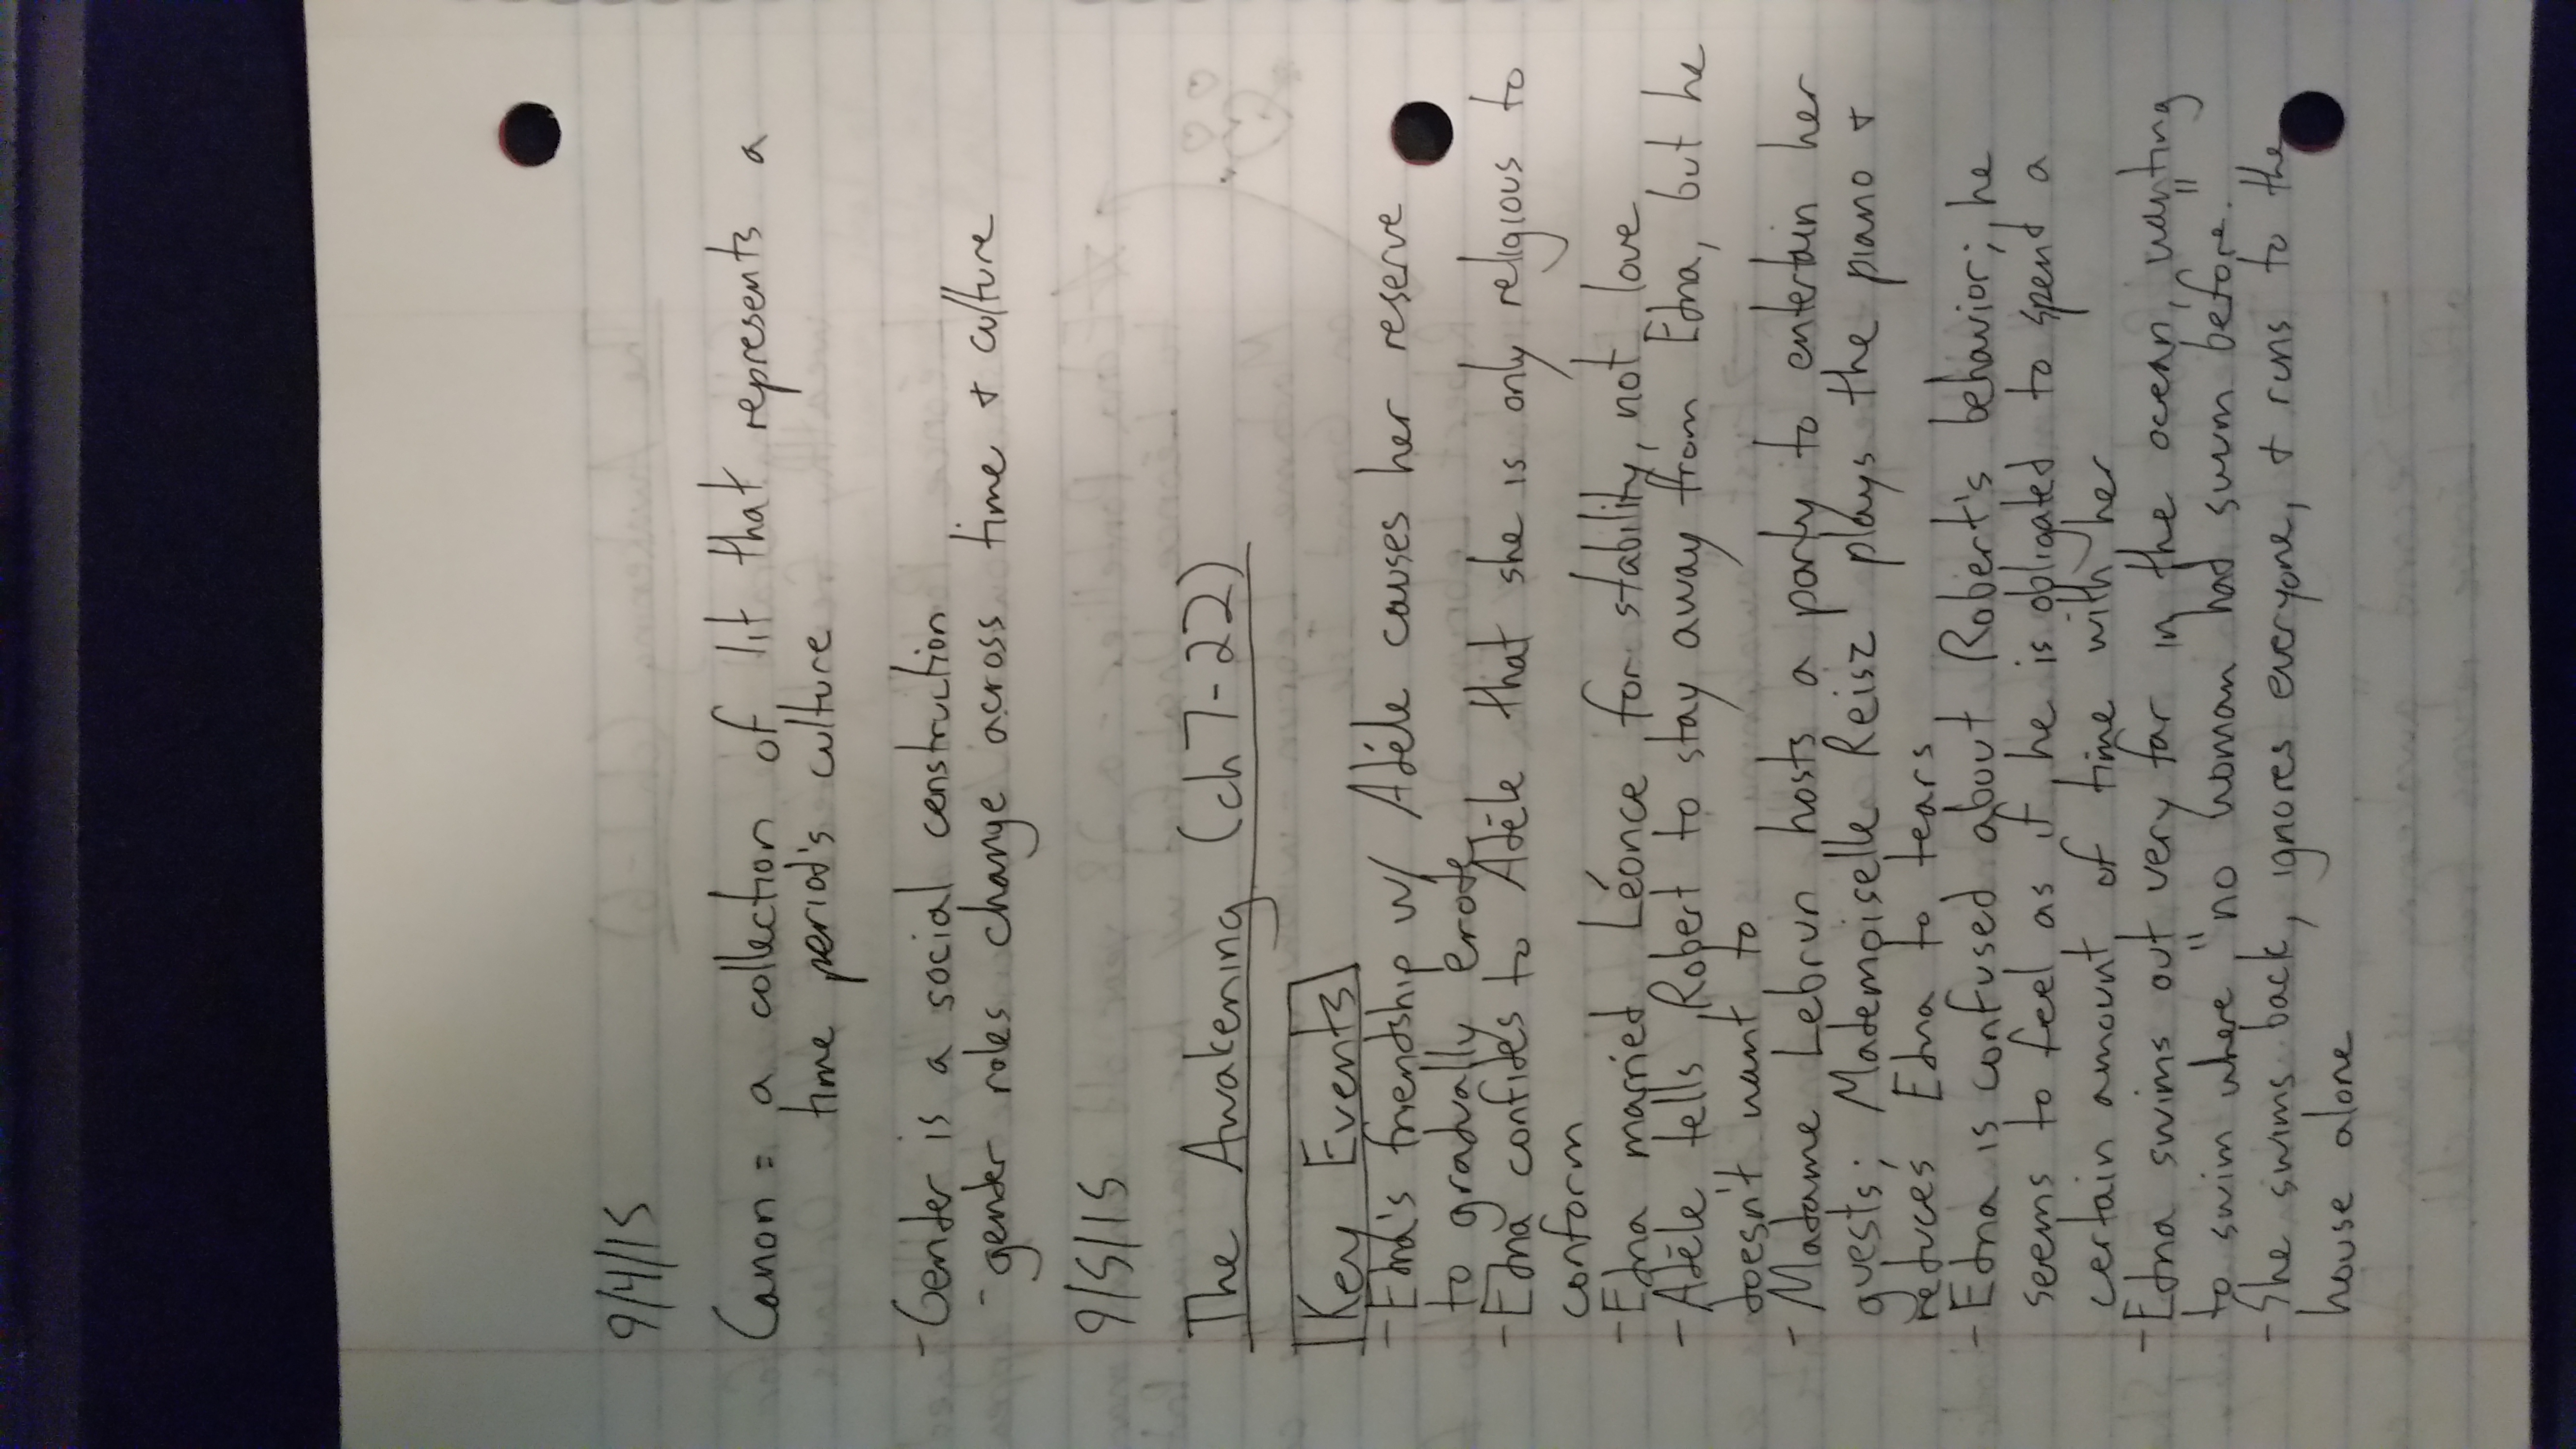 9/4/15
Canon = a collection of lit that represents a
time period's culture
- Gender is a social construction
- gender roles change across time + culture
9/5/15
The Awakening (ch 7-22)
Key Events
- Edna's friendship w/ Adéle causes her reserve
to gradually erode
- Edna confides to Adéle that she is only religious to
conform
- Edna married Léonce for stability, not love
- Adéle tells Robert to stay away from Edna, but he
doesn't want to
- Madame Lebrun hosts a party to entertain her
guests; Mademoiselle Reisz plays the piano +
reduces Edna to tears
- Edna is confused about Robert's behavior; he
seems to feel as if he is obligated to spend a
certain amount of time with her
- Edna swims out very far in the ocean, wanting
to swim where "no woman had swum before."
- She swims back, ignores everyone, + runs to the
house alone